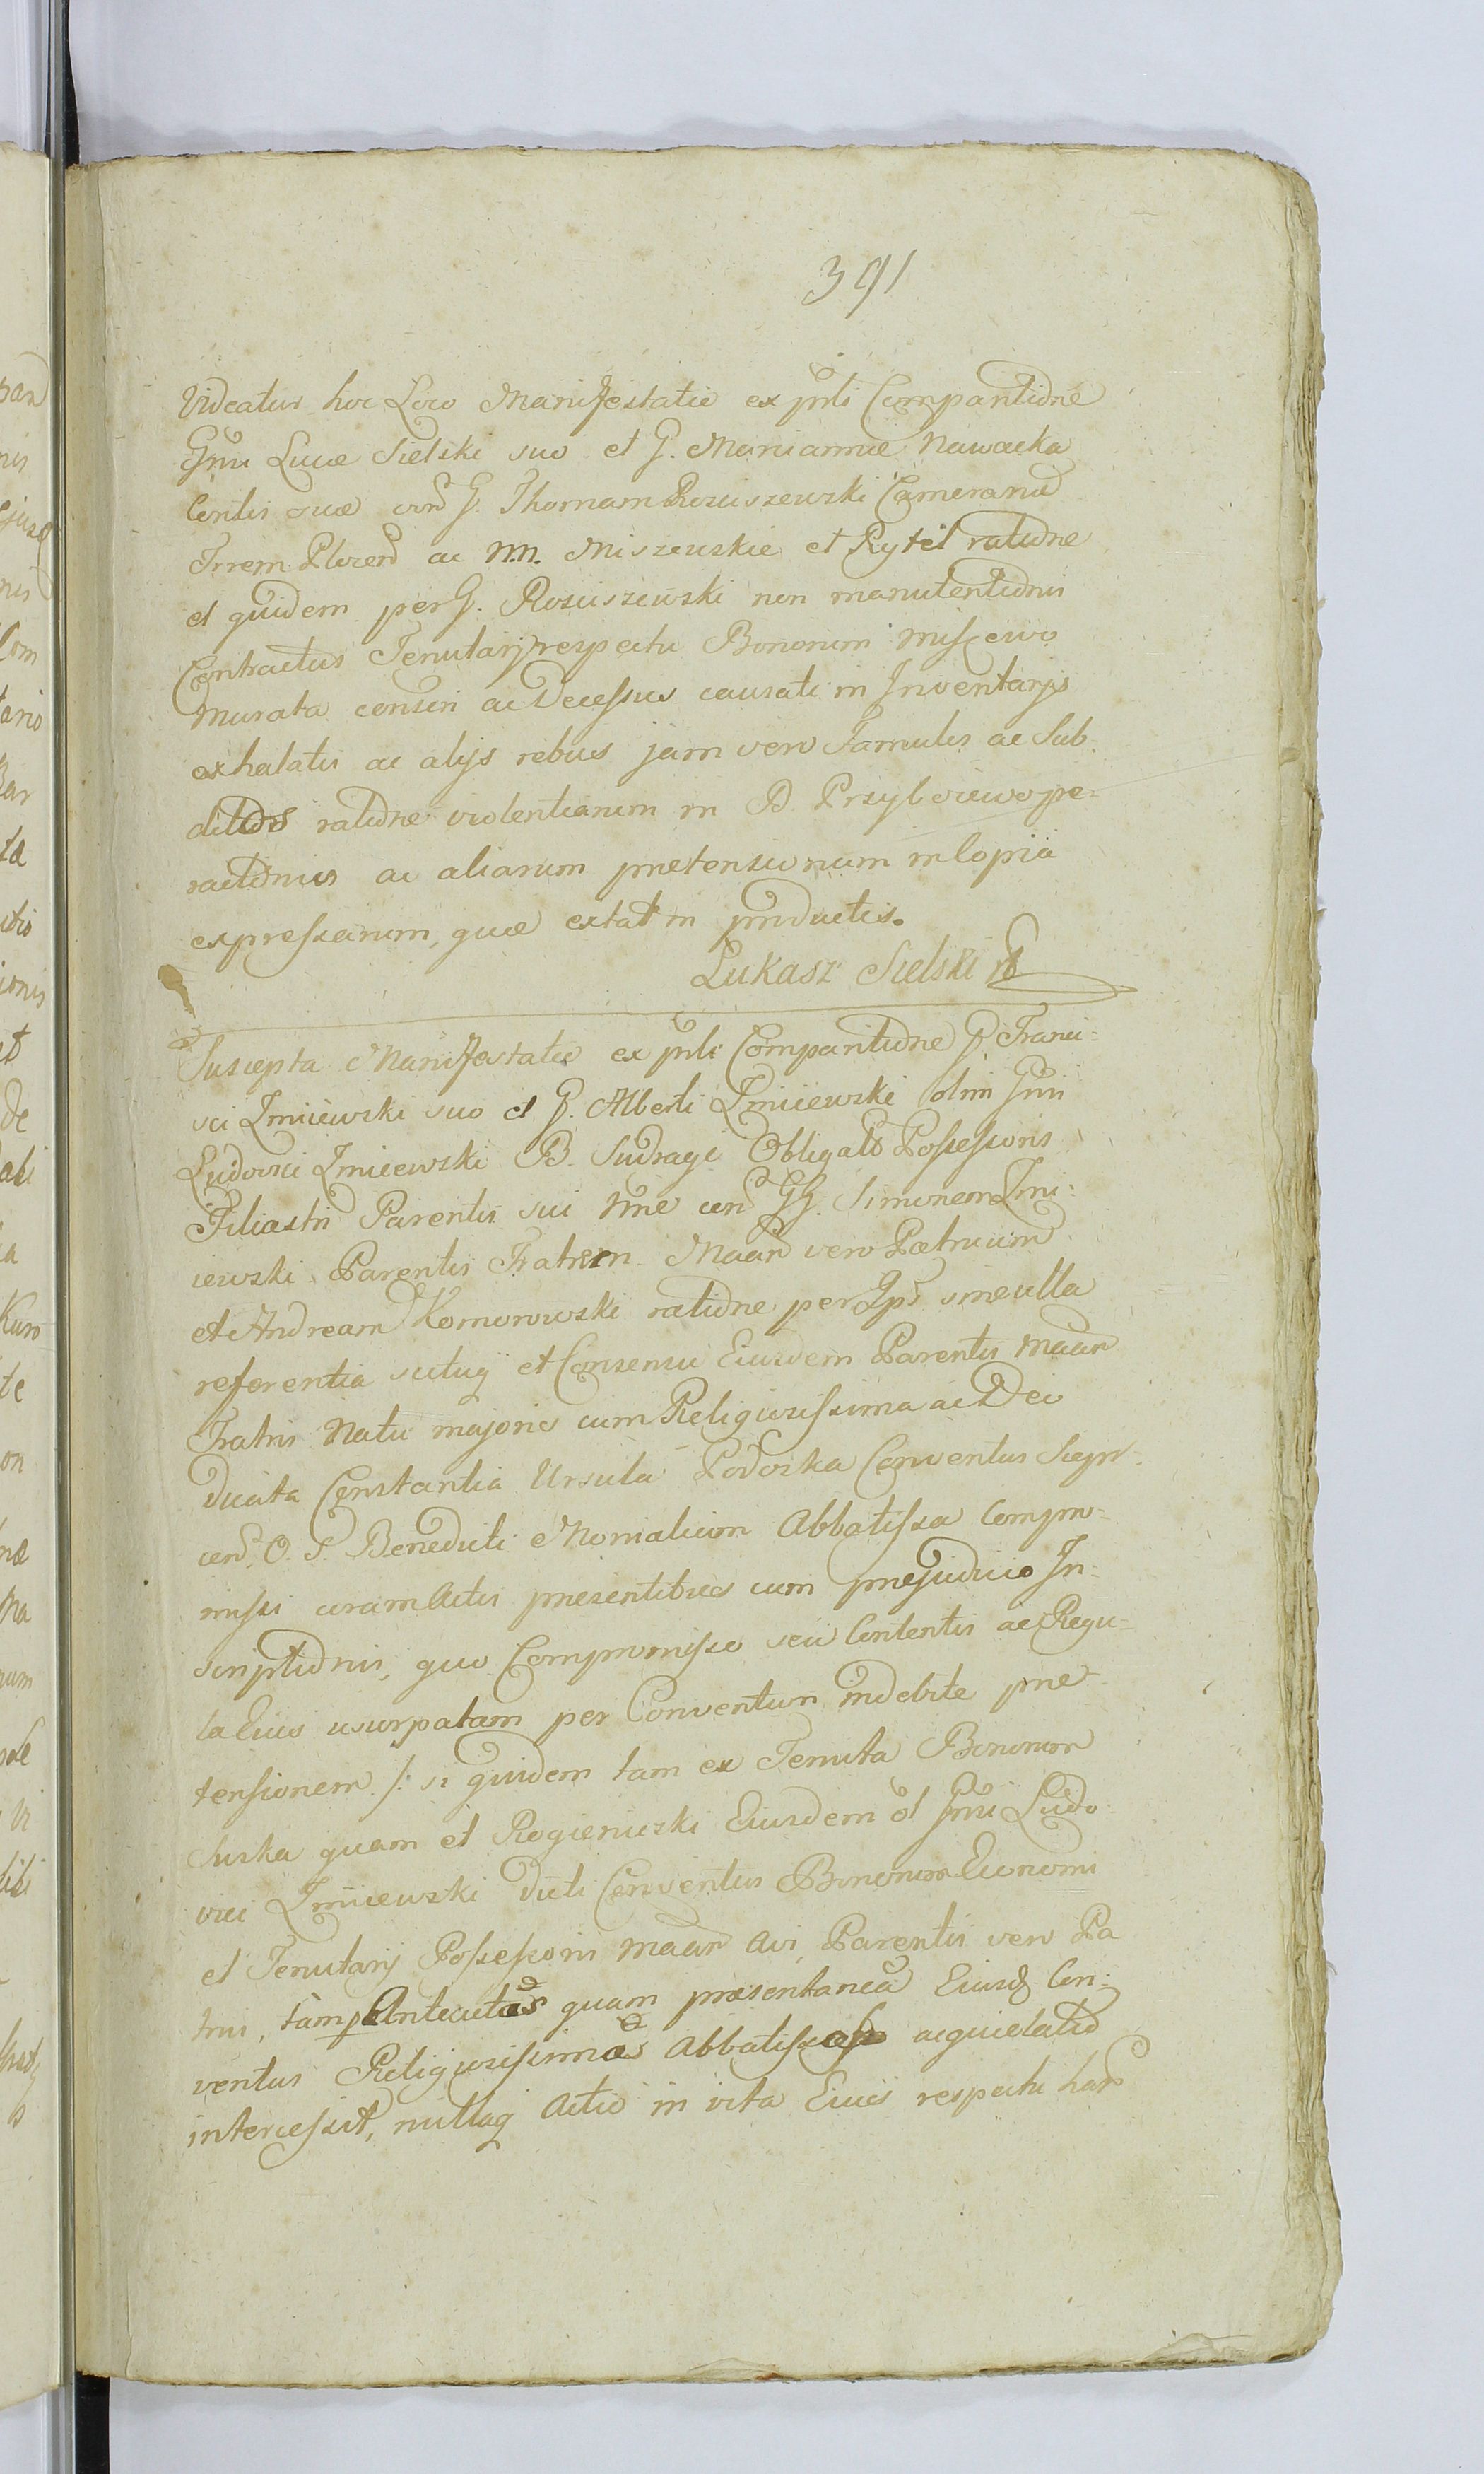 391
Videatur hoc Loco Manifestatio ex pnti Comparitidne
Gnni Lucæ Sielski suo et G. Mariannæ Nawæcka
Contis suæ con G. Thomam Rosciszewski Camerariū
Trrem Plocen ac NN. Miszewskie et Rytel ratidne
et quidem per G. Rosciszewski non manutentidnis
Contractus Tenutarij respectu Bonorum Miszewo
Murata conseri ac Decessus causati in Inventarijs
exhalatis ac alijs rebus jam vero Famulis ac Sub-
ditds ratidne violentiarum in B. Przyborewo pe-
ractidnis ac aliarum prætensionum in Copia
expressarum, quæ extat in productis.
Łukasz Sielski
Suscepta Manifestatio ex pnti Comparitidne G. Franci-
sci Zmiiewski suo et G. Alberti Zmiiewski olim Gnni
Ludovici Zmiiewski B. Sudragi Obligato Possessoris
Filiastri Parentis sui Nne con GG. Simonem Zmi-
iewski Parentis Fratrem Maan vero Patruum
et Andream Komorowski ratidne per Ips sine ulla
referentia scituq et Consensu Eiusdem Parentis Maan
Fratris Natu majoris cum Religiosissima ac Deo
dicata Constantia Ursula Podoska Conventus Sierpr-
cen O. S. Benedicti Monialium Abbatissa Compro-
missi coram Actis præsentibus cum præjudicio In-
scriptidnis, quo Compromisso seu Contentis ac Regu-
la Eius usurpatam per Conventum indebite præ-
tensionem /: si quidem tam ex Tenuta Bonorum
Suska quam et Rogienicski Eiusdem ol Gnni Ludo-
vici Zmiiewski dicti Conventus Bonorum Economi
et Tenutarij Possessoris Maan Avi, Parentis vero Pa
tris, tam per Antecutas quam præsentanea Eiusd Con-
ventus Religiosissimas Abbatissas acquietatio
intercessit, nullaq Actio in vita Eius respectu har